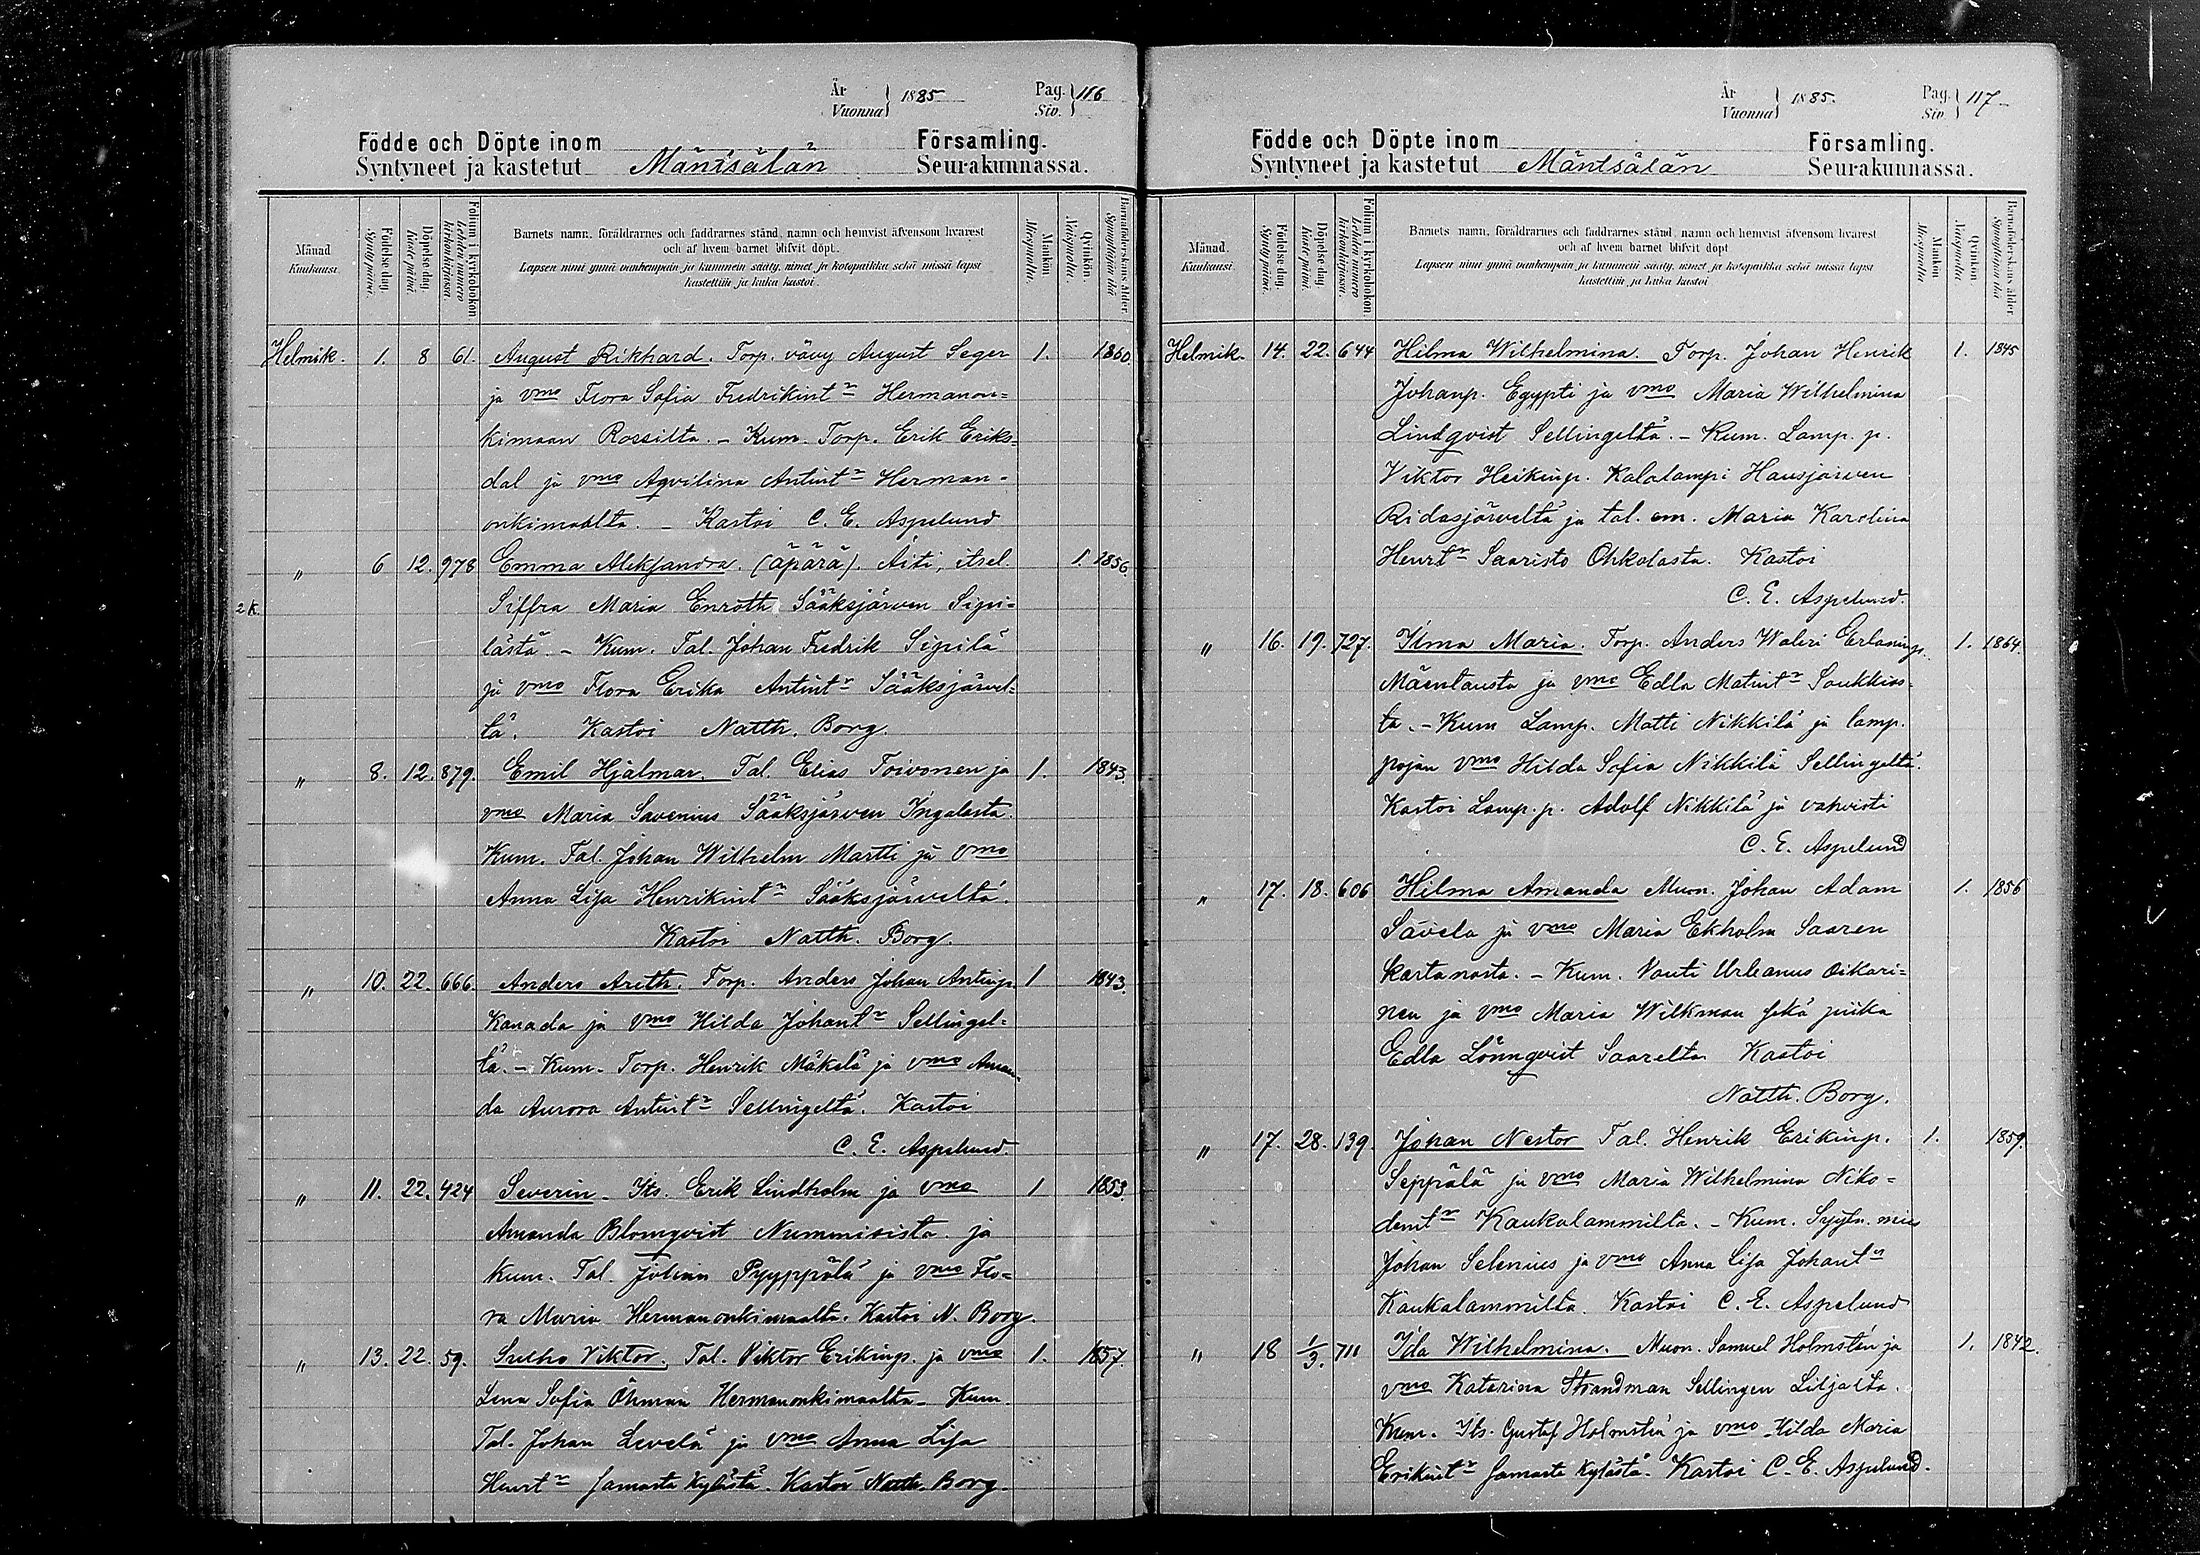 År
Vuonna } 1885
Pag.
Siv. } 116
Födde och Döpte inom Församling.
Syntyneet ja kastetut Mäntsälän Seurakunnassa.
Månad
Kuukausi.
Födelse dag.
Synty päivä.
Döpelse dag.
Kaste päivä.
Folium i kyrkoboken
Lehden numero kirkonkirjassa.
Barnets namn, föräldrarnes och faddrarnes stånd, namn och hemvist äfvensom hvarest
och af hvem barnet blifvit döpt.
Lapsen nimi ynnä vanhempain ja kummein sääty, nimet ja kotopaikka sekä missä lapsi
kastettiin ja kuka kastoi.
Mankön
Miespuolia.
Qvinkön.
Naispuolia.
Barnaföderskans ålder
Synnyttäjän ikä
Helmik. 1. 8 61. August Rikhard. Torp. vävy August Seger 1. 1860.
ja vmo Flora Sofia Fredrikint:r Hermanon=
kimaan Rossilta. - Kum. Torp. Erik Eriks-
dal ja vmo Aqvilina Antint:r Herman-
onkimaalta. - Kastoi C. E. Aspelund
" 6 12. 978 Emma Aleksandra. (äpärä). Äiti, itsel. 1. 1856.
2 k. Siffra Maria Enroth Sääksjärven Sipi=
lästä. - Kum. Tal. Johan Fredrik Sipilä
ja vmo Flora Erika Antint:r Sääksjärvel-
tä. Kastoi Natth. Borg.
" 8. 12. 879. Emil Hjalmar. Tal. Elias Toivonen ja 1. 1843.
vmo Maria Savenius Sääksjärven Ingalasta.
Kum. Tal. Johan Wilhelm Martti ja vmo
Anna Lisa Henrikint:r Sääksjärveltä.
Kastoi Natth. Borg.
" 10. 22. 666. Anders Areth. Torp. Anders Johan Antinp. 1 1843.
Kanada ja vmo Hilda Johant:r Sellingel=
tä. - Kum. Torp. Henrik Mäkelä ja vmo Aman-
da Aurora Antint:r Sellingeltä. Kastoi
C. E. Aspelund.
" 11. 22. 424 Severin - Its. Erik Lindholm ja vmo 1 1853.
Amanda Blomqvist Nummisista. ja
Kum. Tal. Johan Pyyppölä ja vmo Flo=
ra Maria Hermanonkimaalta. Kastoi N. Borg.
" 13. 22. 59. Sulho Viktor. Tal. Viktor Erikinp. ja vmo 1. 1857.
Lena Sofia Öhman Hermanonkimaalta - Kum.
Tal. Johan Levelä ja vmo Anna Lisa
Henrt:r samasta kylästä. Kastoi Natth. Borg.
År
Vuonna } 1885.
Pag.
Siv. } 117
Födde och Döpte inom Församling.
Syntyneet ja kastetut Mäntsälän Seurakunnassa.
Månad.
Kuukausi.
Födelse dag.
Synty päivä.
Döpelse dag.
Kaste päivä.
Folium i kyrkoboken
Lehden numero kirkonkirjassa.
Barnets namn, föräldrarnes och faddrarnes stånd, namn och hemvist äfvensom hvarest
och af hvem barnet blifvit döpt.
Lapsen nimi ynnä vanhempain ja kummein sääty, nimet ja kotopaikka sekä missä lapsi
kastettiin ja kuka kastoi
Mankön
Miespuolia
Qvinkön.
Naispuolia
Barnaföderskans ålder
Synnyttäjän ikä
Helmik. 14. 22. 644 Hilma Wilhelmina. Torp. Johan Henrik 1. 1845
Johanp. Egypti ja vmo Maria Wilhelmina
Lindqvist Sellingeltä. - Kum. Lamp. p.
Viktor Heikinp. Kalalampi Hausjärven
Ridasjärveltä ja tal. em. Maria Karolina
Henrt:r Saaristo Ohkolasta. Kastoi
C. E. Aspelund.
" 16. 19. 727. Ilma Maria. Torp. Anders Waleri Erlaninp. 1. 1864.
Mäentausta ja vmo Edla Matint:r Soukkios-
ta. - Kum Lamp. Matti Nikkilä ja lamp.
pojan vmo Hilda Sofia Nikkilä Sellingeltä.
Kastoi Lamp. p. Adolf Nikkilä ja vahvisti
C. E. Aspelund
" 17. 18. 606 Hilma Amanda Muon. Johan Adam 1. 1856
Sävela ja vmo Maria Ekholm Saaren
kartanosta. - Kum. Vouti Urbanus Oikari=
nen ja vmo Maria Wilkman sekä piika
Edla Lönnqvist Saarelta Kastoi
Natth. Borg.
" 17. 28. 139. Johan Nestor Tal. Henrik Erikinp. 1. 1859.
Seppälä ja vmo Maria Wilhelmina Niko=
demt:r Kaukalammilta. - Kum. Syytn. mies
Johan Selenius ja vmo Anna Lisa Johant:r
Kaukalammilta. Kastoi C. E. Aspelund
" 18 1/3. 711 Ida Wilhelmina. Muon. Samuel Holmstén ja 1. 1842.
vmo Katarina Strandman Sellingen Liljalta.
Kum. Its. Gustaf Holmstén ja vmo Hilda Maria
Erikint:r samasta kylästä. Kastoi C. E. Aspelund.